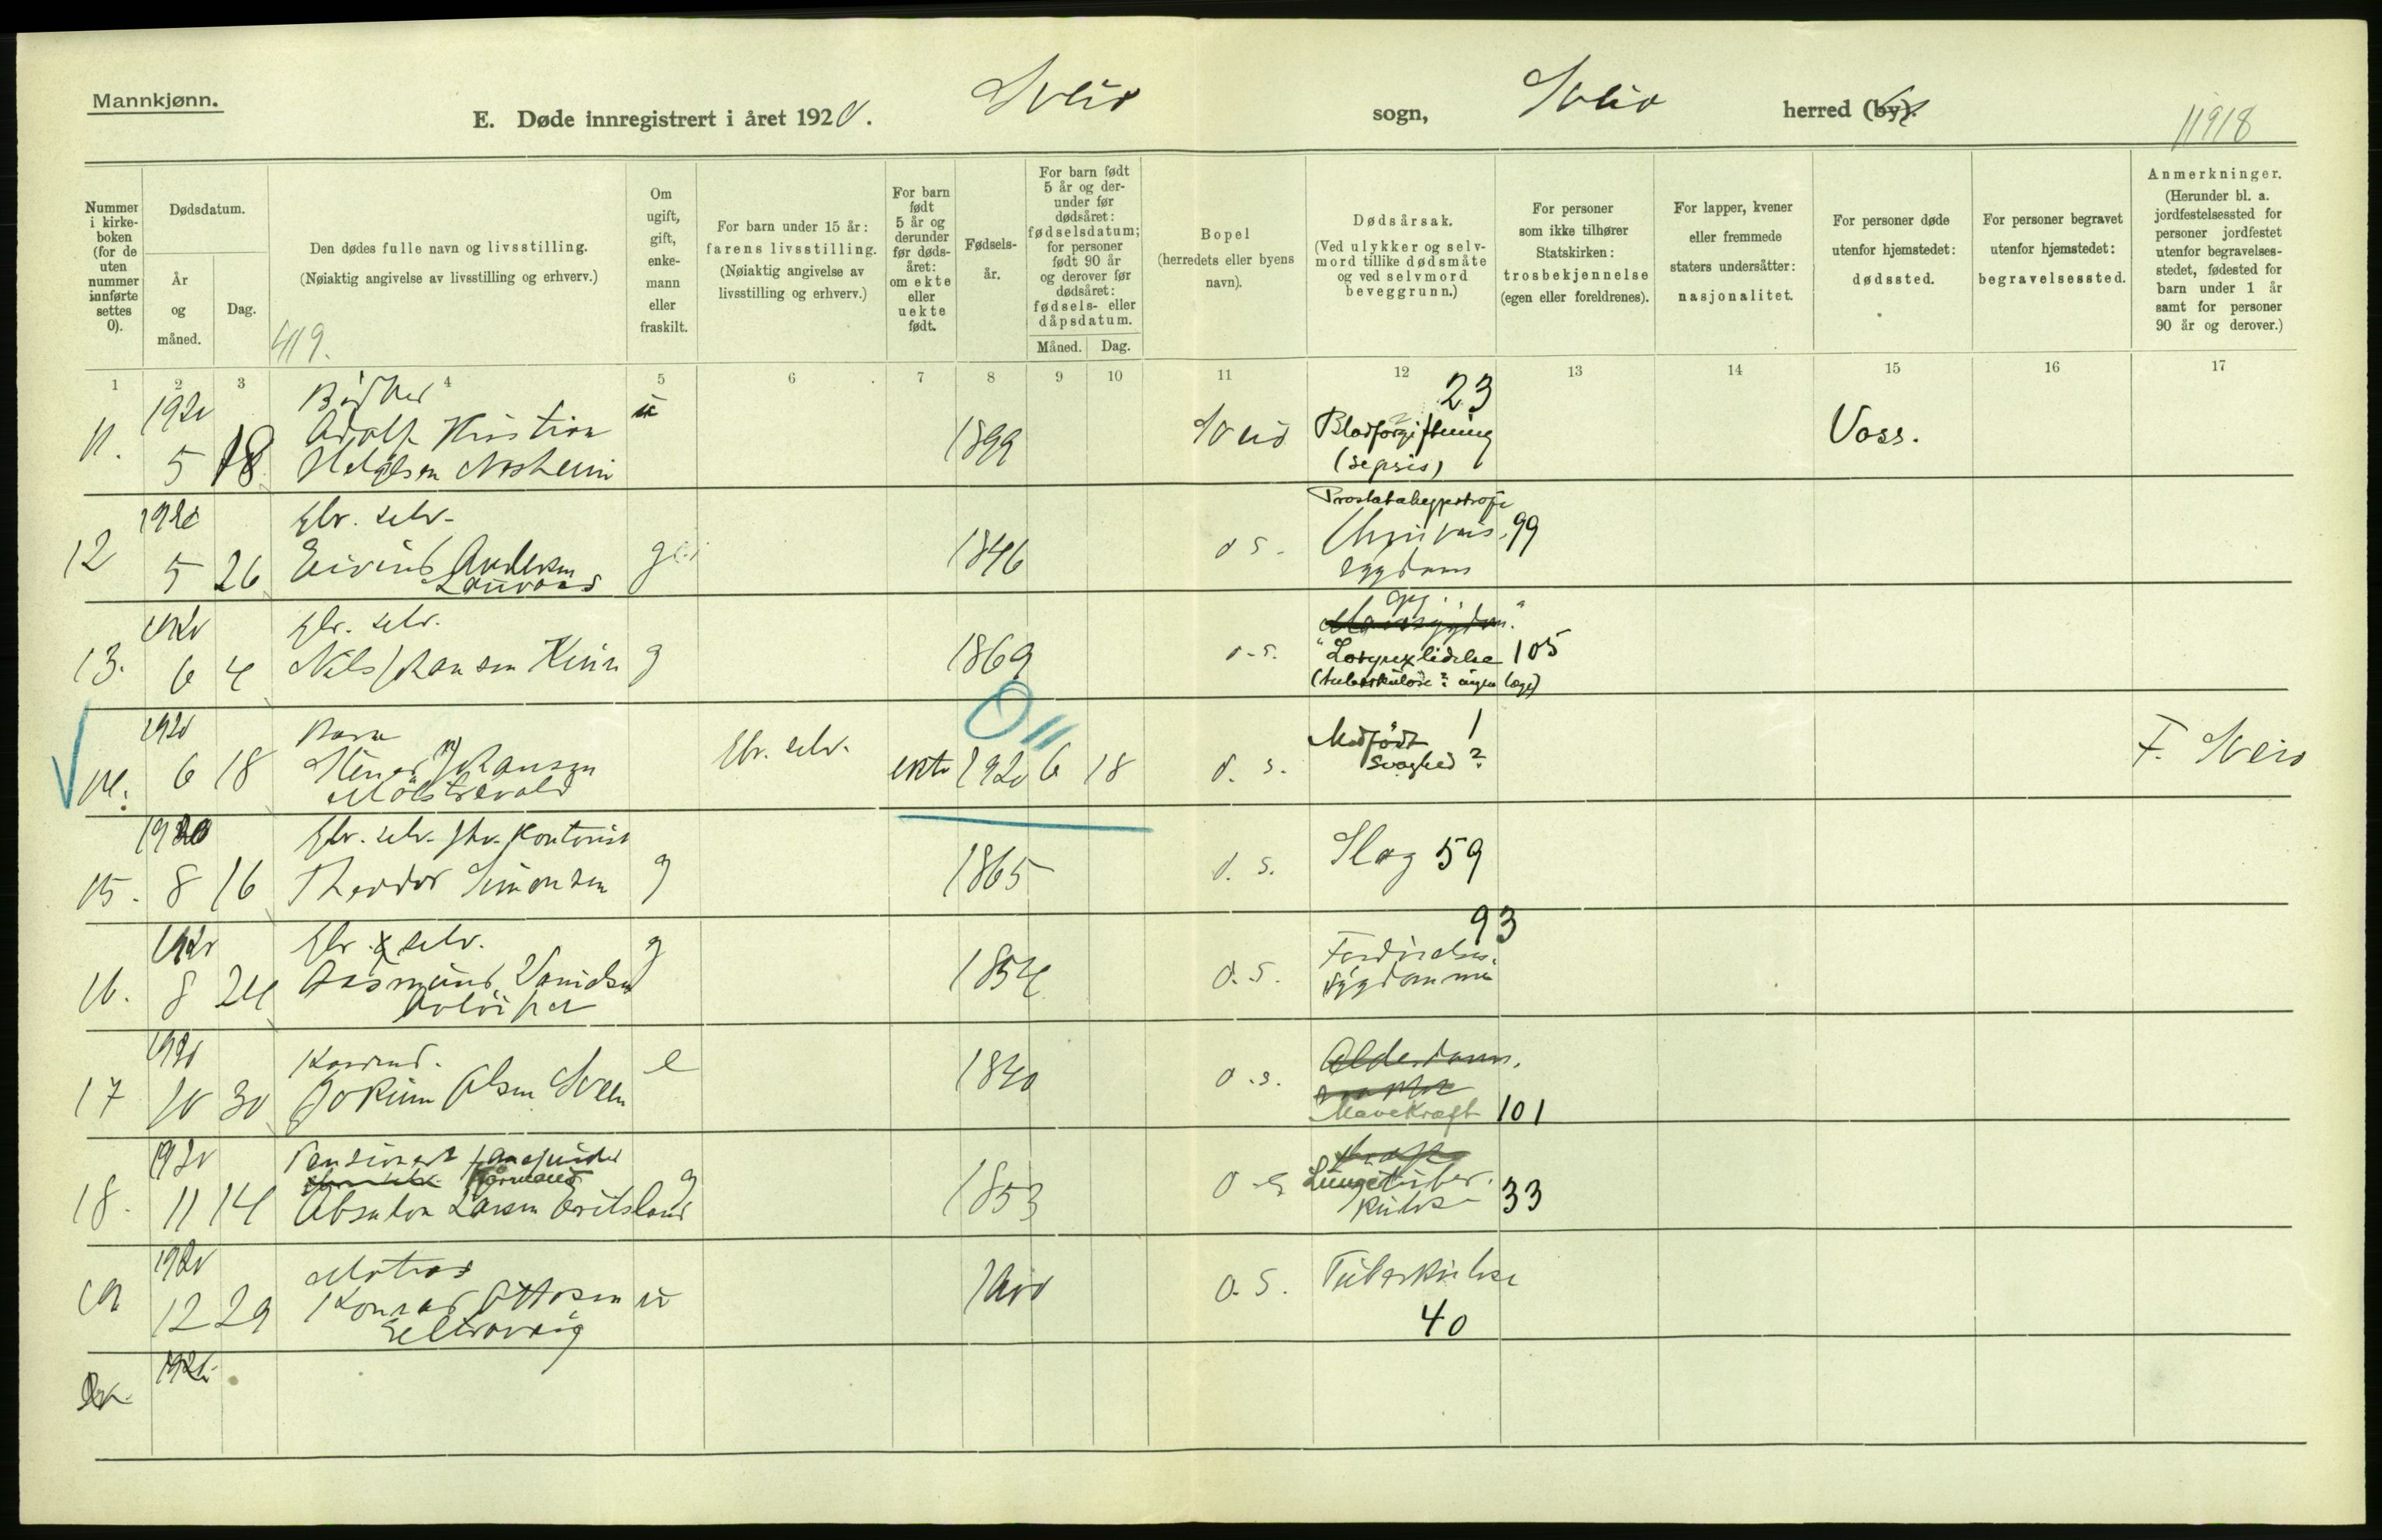 Mannkjønn.
E. Døde innregistrert i året 1920. Sveio sogn, Sveio herred (by).
11918
Nummer i kirkeboken (for de uten nummer innførte settes 0).
Dødsdatum.
År og måned.
Dag.
Den dødes fulle navn og livsstilling.
(Nøiaktig angivelse av livsstilling og erhverv.)
419.
Om ugift, gift, enkemann eller fraskilt.
For barn under 15 år: farens livsstilling.
(Nøiaktig angivelse av livsstilling og erhverv.)
For barn født 5 år og derunder før dødsåret: om ekte eller uekte født.
Fødselsår.
For barn født 5 år og derunder før dødsåret: fødselsdatum; for personer født 90 år og derover før dødsåret: fødsels- eller dåpsdatum.
Måned. Dag.
Bopel (herredets eller byens navn).
Dødsårsak.
(Ved ulykker og selvmord tillike dødsmåte og ved selvmord beveggrunn.)
For personer som ikke tilhører Statskirken: trosbekjennelse (egen eller foreldrenes).
For lapper, kvener eller fremmede staters undersåtter: nasjonalitet.
For personer døde utenfor hjemstedet: dødssted.
For personer begravet utenfor hjemstedet: begravelsessted.
Anmerkninger.
(Herunder bl. a. jordfestelsessted for personer jordfestet utenfor begravelsesstedet, fødested for barn under 1 år samt for personer 90 år og derover.)
1 2 3 4 5 6 7 8 9 10 11 12 13 14 15 16 17
1920 23
11. 5 18 Adolf Kristian u 1899 Sveio Blodforgiftning Voss.
Helgesen (sepsis)
1920 gbr. selv. Prostatahypertrofi
12 5 26 Eivind Andersen g 1846 d. s. 99
1920 gbr. selv.
13. 6 4 Nils Johansen g 1869 d. s. "Larynxlidelse 105
(tuberkuløse? ingen læge)
1920 Barn Medfødt 1
14. 6 18 Johansen gbr. selv. ekte 1920 6 18 d. s. svaghed? F. Sveio
1920 gbr. selv. fhv. kontorist
15. 8 16 Theodor Simonsen g 1865 d. s. Slag 59
1920 gbr. selv. g 93
16. 8 24 Aasmund 1854 d. s. Fordøielses-
sygdomme
1920 Kaarmd. e Alderdoms
17 10 30 Jokum Olsen Sveen 1840 d. s.
Mavekræft 101
1920 Pensionert
18. 11 14 Absalon Larsen g 1853 d. s. Lungetuber-
kulose 33
1920 Matros
19 12 29 Konrad Ottosen u d. s. Tuberkulose
40
1920